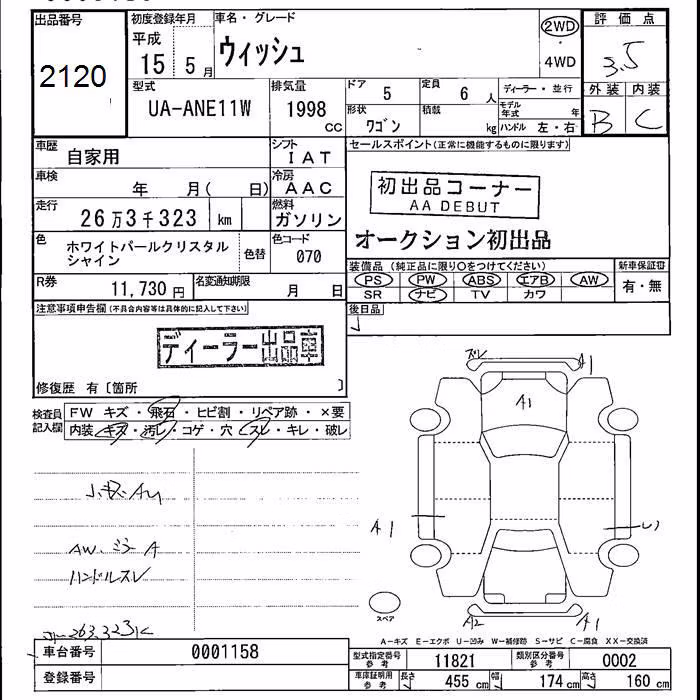 出品番号 初度登録年月 車名・グレード 2WD 評価点
2120 平成 15 5月 ウィッシュ ・ 4WD 3.5
型式 UA-ANE11W 排気量 1998 CC ドア 5 定員 6 人 ディーラー・並行 外装 内装
形状 ワゴン 積載 kg モデル年式 年 ハンドル 左・右 B C
車歴 自家用 シフト IAT セールスポイント(正常に機能するものに限ります)
車検 年 月( 日) 冷房 AAC 初出品コーナー
AA DEBUT
走行 26万3千323 km 燃料 ガソリン オークション初出品
色 ホワイトパールクリスタル
シャイン 色替 色コード 070
装備品(純正品に限り○をつけてください) 新車保証書
PS PW ABS エアB AW 有・無
SR ナビ TV カワ
R券 11,730円 名変通知期限 月 日
後日品
注意事項申告欄(不具合内容等は具体的に記入して下さい)
ディーラー出品車
修復歴 有〔箇所 〕
検査員記入欄 FW キズ・飛石・ヒビ割・リペア跡・×要
内装・キズ・汚レ・コゲ・穴・スレ・キレ・破レ
A1
A1
A1
AW. ミラーA
ハンドルスレ
スペア
A2 A1
263.323K
A-キズ E-エクボ U-凹み W-補修跡 S-サビ C-腐食 XX-交換済
車台番号 0001158
登録番号
型式指定番号 参考 11821 類別区分番号 参考 0002
車庫証明用 参考 長さ 455 cm 幅 174 cm 高さ 160 cm